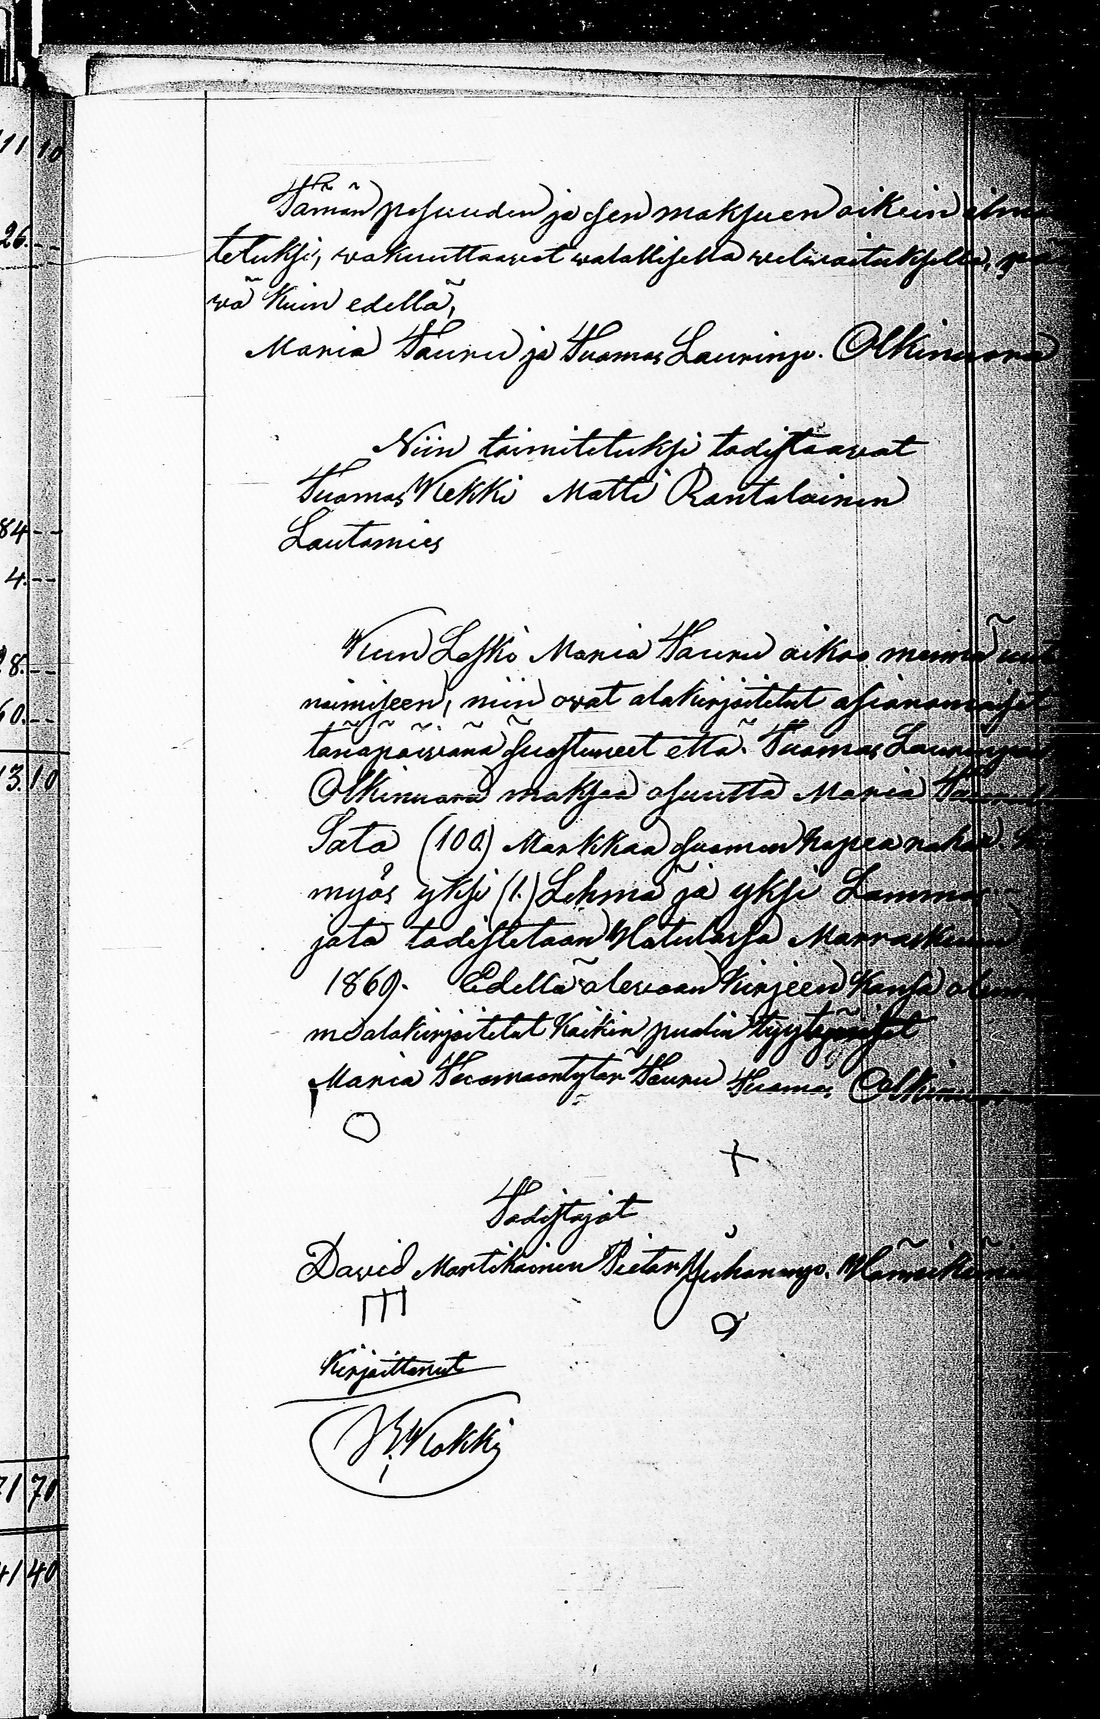 11 10
Tämän pesuuden ja sen maksuen oikein ilmo
26 --
tetuksi, wakuuttaavat walallisella welwoituksella, päi
wä kuin edellä,
Maria Tauru ja Tuomas Laurinp. Olkinuora
Niin toimitetuksi todistaavat
Tuomas Kekki Matti Rantalainen
84 --
Lautamies
4 --
Kun Leski Maria Tauru aikoo mennä uut
8 --
naimiseen, niin ovat alakirjoitetut asianomaiset
60 --
tänäpäivänä suostuneet että Tuomas Laurinpoi
13 10
Olkinuora maksaa osuutta Maria Taurul
Sata (100) Markkaa suomen hopea rahaa
myös yksi (1.) Lehmä ja yksi Lammas
jota todistetaan Hatulassa Marraskuun
1869. Edellä olevaan kirjeen kansa olemm
me alakirjoitetut kaikin puolin tyytyväiset
Maria Tuomaantytär Tauru Tuomas Olkinuora
Todistajat
David Martikainen Pietar Juhananp. Hämäläinen
Kirjoittanut
Kokki
71 70
41 40